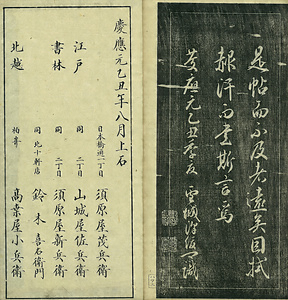 是帖而不及者遠矣目拭
赧汗而書斯言焉
慶應元乙丑季夏
慶應元乙丑年八月上石
日本橋通一丁目
江戸
須原屋茂兵衛
同 二丁目
山城屋佐兵衛
書林
同 二丁目
須原屋新兵衛
同 北十軒店
鈴木喜右衛門
北越
柏崎
高桑屋小兵衛